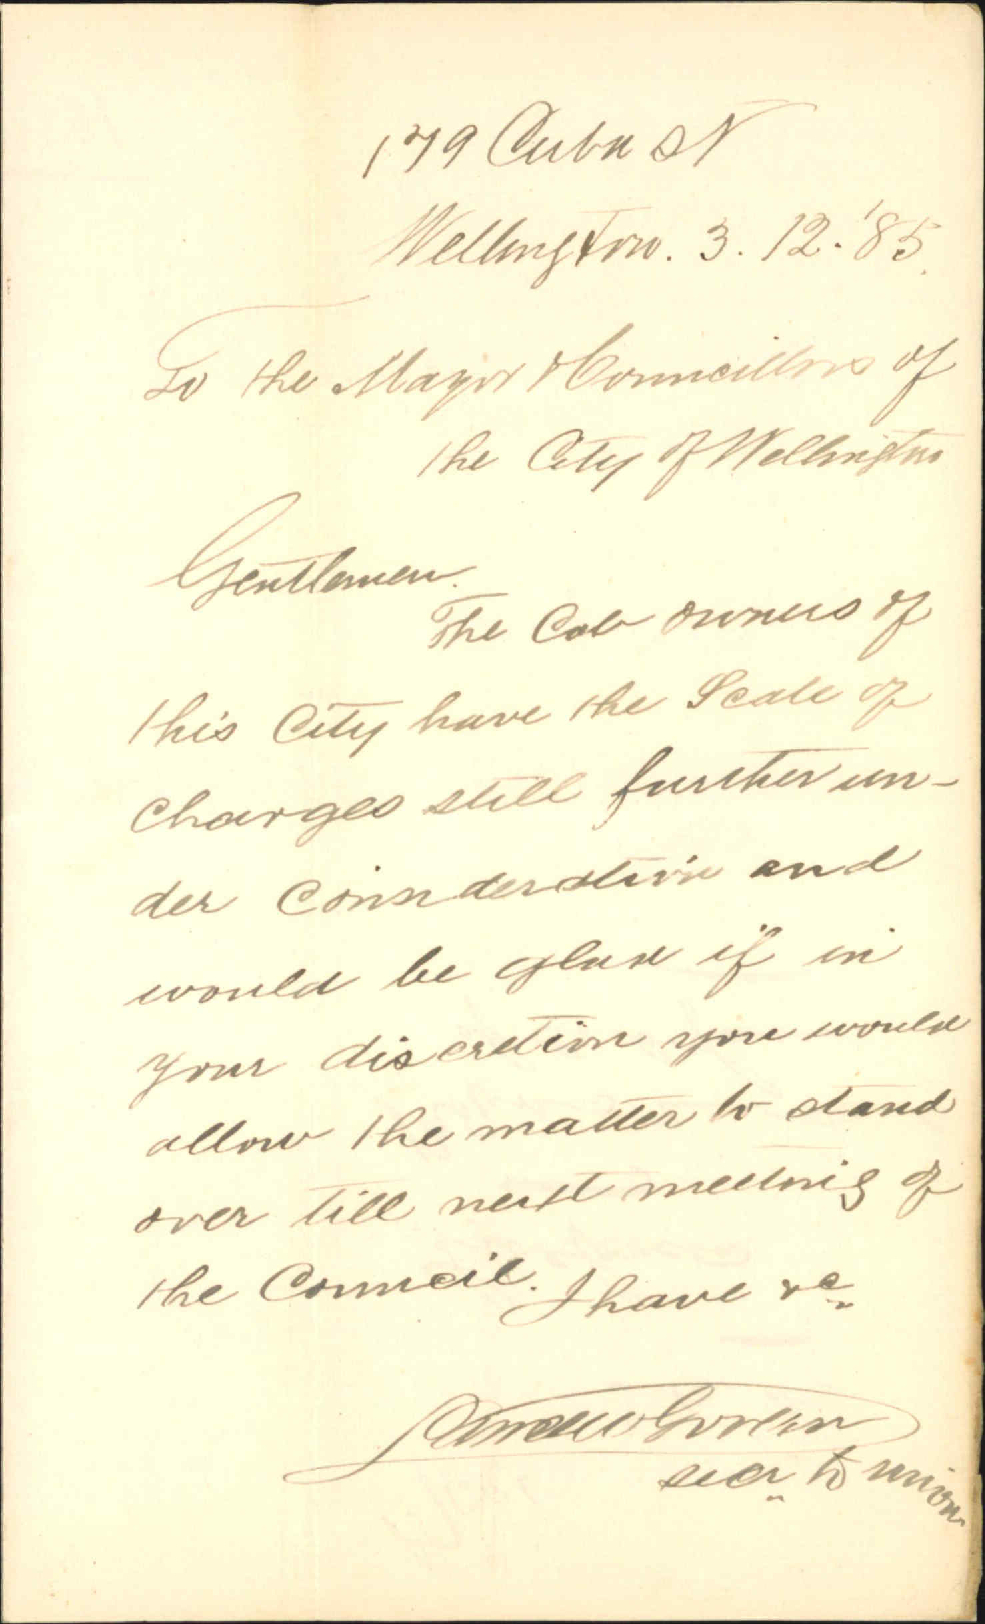 179 Cuba St
Wellington. 3. 12. '85.
To the Mayor & Councillors of
the City of Wellington
Gentlemen.
The Cab owners of
this City have the Scale of
Charges still further un-
der Consideration and
would be glad if in
your discretion you would
allow the matter to stand
over till next meeting of
the Council. I have &c
Andrew
secr. to union